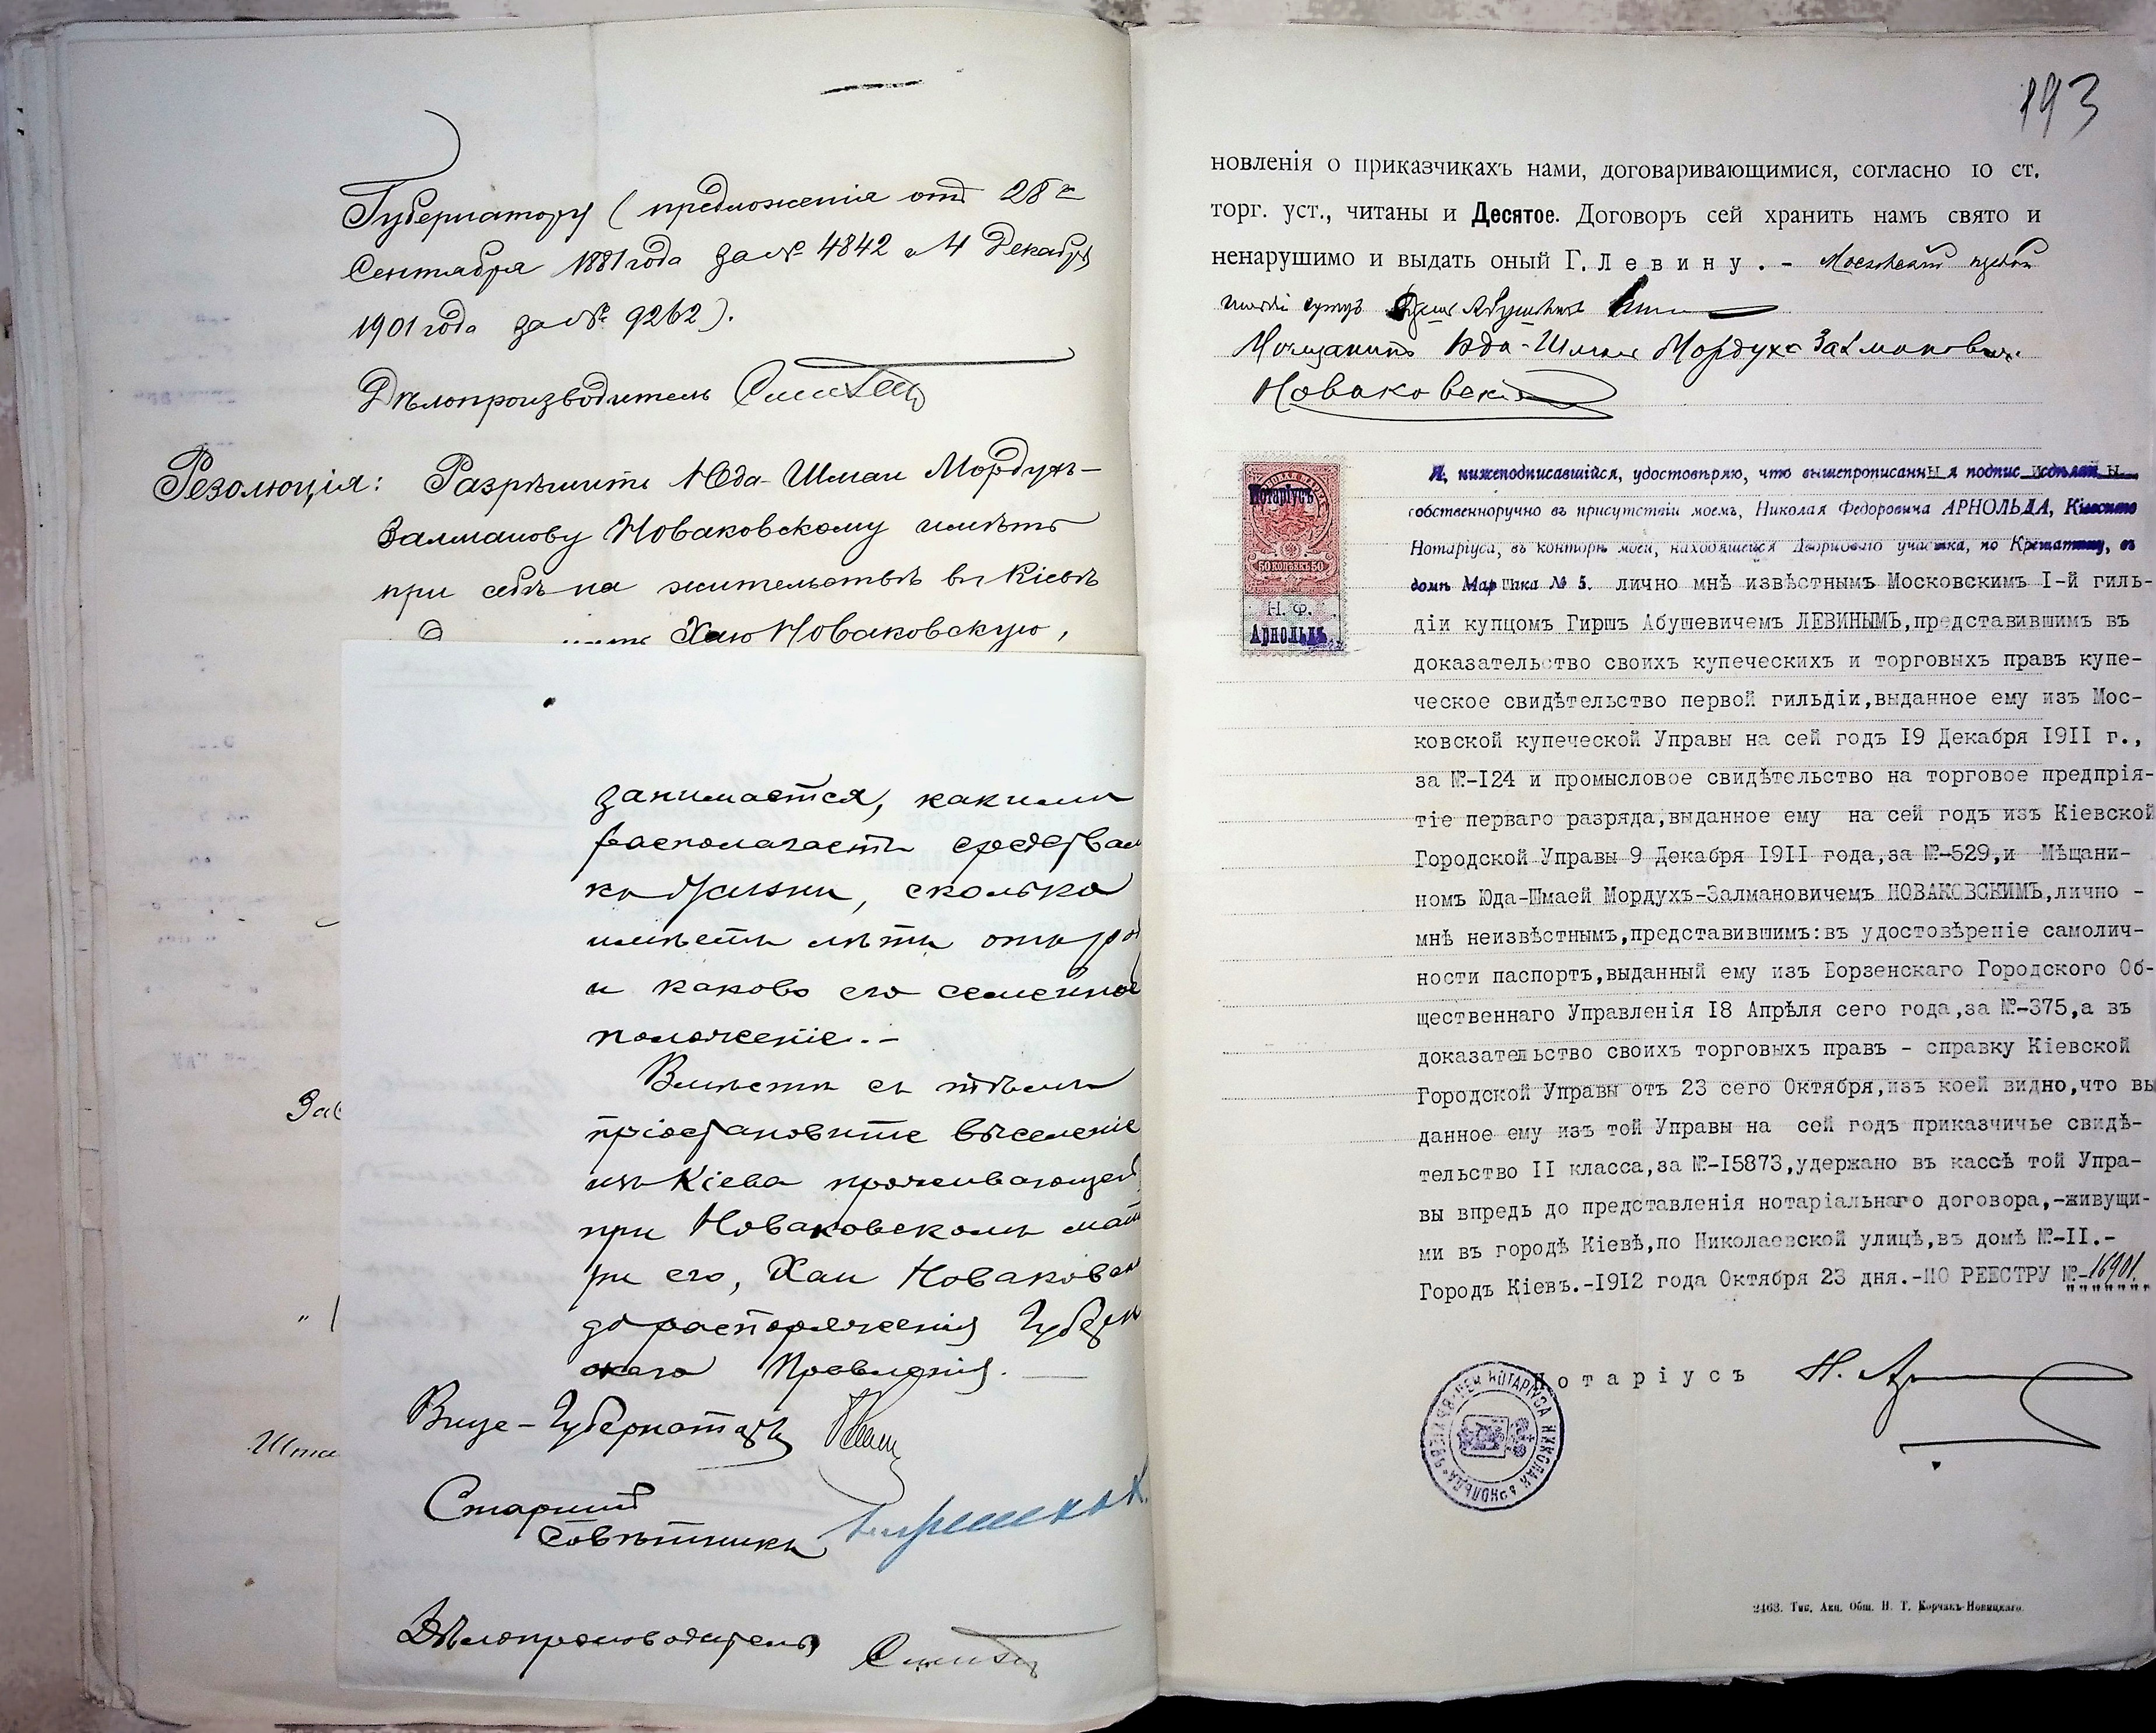 Губернатору (предложенія отъ 28го
Сентября 1881 года за № 4842 и 4 Декабря
1901 года за № 9262).
Дѣлопроизводитель
Резолюція: Разрѣшить Юда-Шмаи Мордухъ-
Залманову Новаковскому имѣть
при себѣ на жительствѣ въ Кіевѣ
Хаю Новаковскую,
занимается, какими
располагаетъ средствам
къ жизни, сколько
имѣетъ лѣтъ отъ ро
и каково его семейное
положеніе.-
Вмѣстѣ съ тѣмъ
пріостановите выселеніе
изъ Кіева проживающей
при Новаковскомъ мат
ри его, Хаи Новаковск
до распоряженія Губерн
скаго Правленія.
Вице-Губернаторъ
Старшій
Совѣтникъ
Дѣлопроизводитель
Зав
"
Шта
193
новленія о приказчикахъ нами, договаривающимися, согласно 10 ст.
торг. уст., читаны и Десятое. Договоръ сей хранить намъ свято и
ненарушимо и выдать оный Г. Левину.- Московскій первой
гильдіи купецъ Гиршъ Абушевичъ Левинъ
Мѣщанинъ Юда-Шмая Мордухъ Залмановичъ
Новаковскій
Нотаріусъ
50 КОПѢЕКЪ 50
Н. Ф.
Арнольдъ
Я, нижеподписавшійся, удостовѣряю, что вышепрописанныя подписи сдѣланы
собственноручно въ присутствіи моемъ, Николая Федоровича АРНОЛЬДА, Кіевскаго
Нотаріуса, въ конторѣ моей, находящейся Дворцоваго участка, по Крещатику, въ
домѣ Маршака № 5. лично мнѣ извѣстнымъ Московскимъ I-й гиль-
діи купцомъ Гиршъ Абушевичемъ ЛЕВИНЫМЪ,представившимъ въ
доказательство своихъ купеческихъ и торговыхъ правъ купе-
ческое свидѣтельство первой гильдіи,выданное ему изъ Мос-
ковской купеческой Управы на сей годъ 19 Декабря 1911 г.,
за №-124 и промысловое свидѣтельство на торговое предпрія-
тіе перваго разряда,выданное ему на сей годъ изъ Кіевской
Городской Управы 9 Декабря 1911 года,за №-529,и Мѣщани-
номъ Юда-Шмаей Мордухъ-Залмановичемъ НОВАКОВСКИМЪ,лично -
мнѣ неизвѣстнымъ,представившимъ:въ удостовѣреніе самолич-
ности паспортъ,выданный ему изъ Борзенскаго Городского Об-
щественнаго Управленія 18 Апрѣля сего года,за №-375,а въ
доказательство своихъ торговыхъ правъ - справку Кіевской
Городской Управы отъ 23 сего Октября,изъ коей видно,что вы
данное ему изъ той Управы на сей годъ приказчичье свидѣ-
тельство II класса,за №-15873,удержано въ кассѣ той Упра-
вы впредь до представленія нотаріальнаго договора,-живущи-
ми въ городѣ Кіевѣ,по Николаевской улицѣ,въ домѣ №-II.-
Городъ Кіевъ.-1912 года Октября 23 дня.-ПО РЕЕСТРУ №-16901.
Нотаріусъ Н.
2463. Тип. Акц. Общ. Н. Т. Корчакъ-Новицкаго.